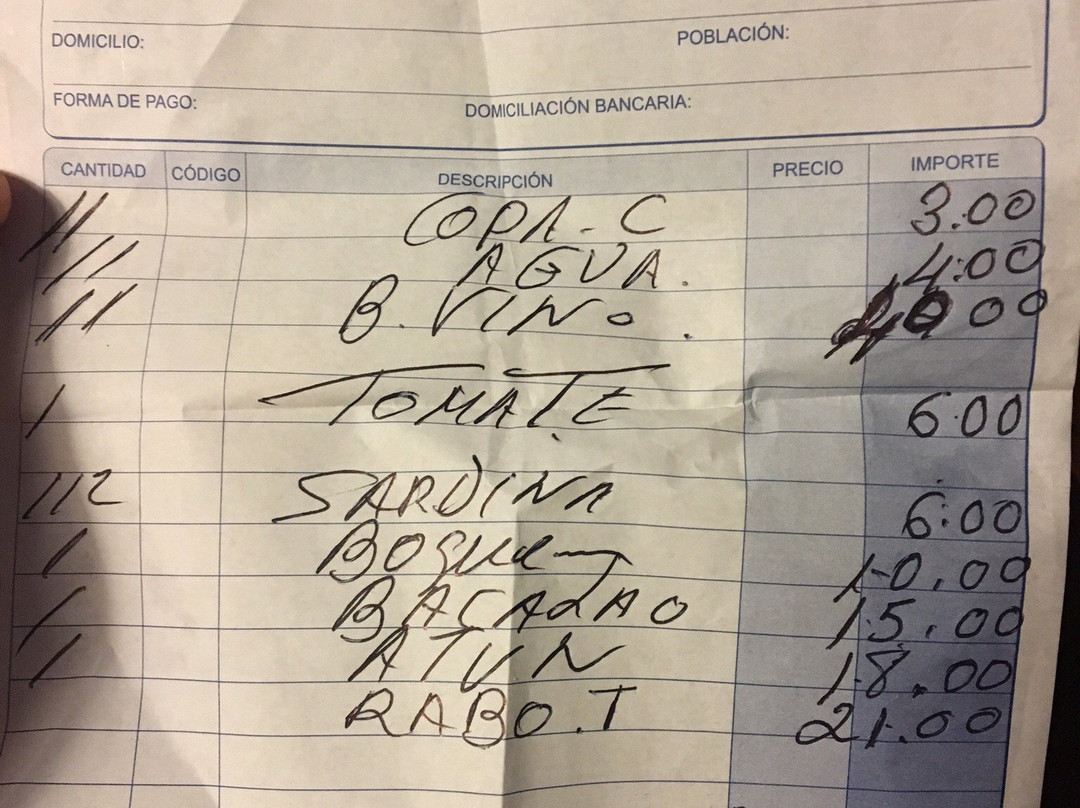 DOMICILIO: POBLACIÓN:
FORMA DE PAGO: DOMICILIACIÓN BANCARIA:
CANTIDAD CÓDIGO DESCRIPCIÓN PRECIO IMPORTE
11 COPA-C 3.00
111 AGUA. 4:00
11 B. VINO. 00
1 TOMATE 6.00
112 SARDINA 6:00
1 BOQUE 10.00
1 BACALAO 15.00
1 ATUN 18.00
RABO.T 21.00